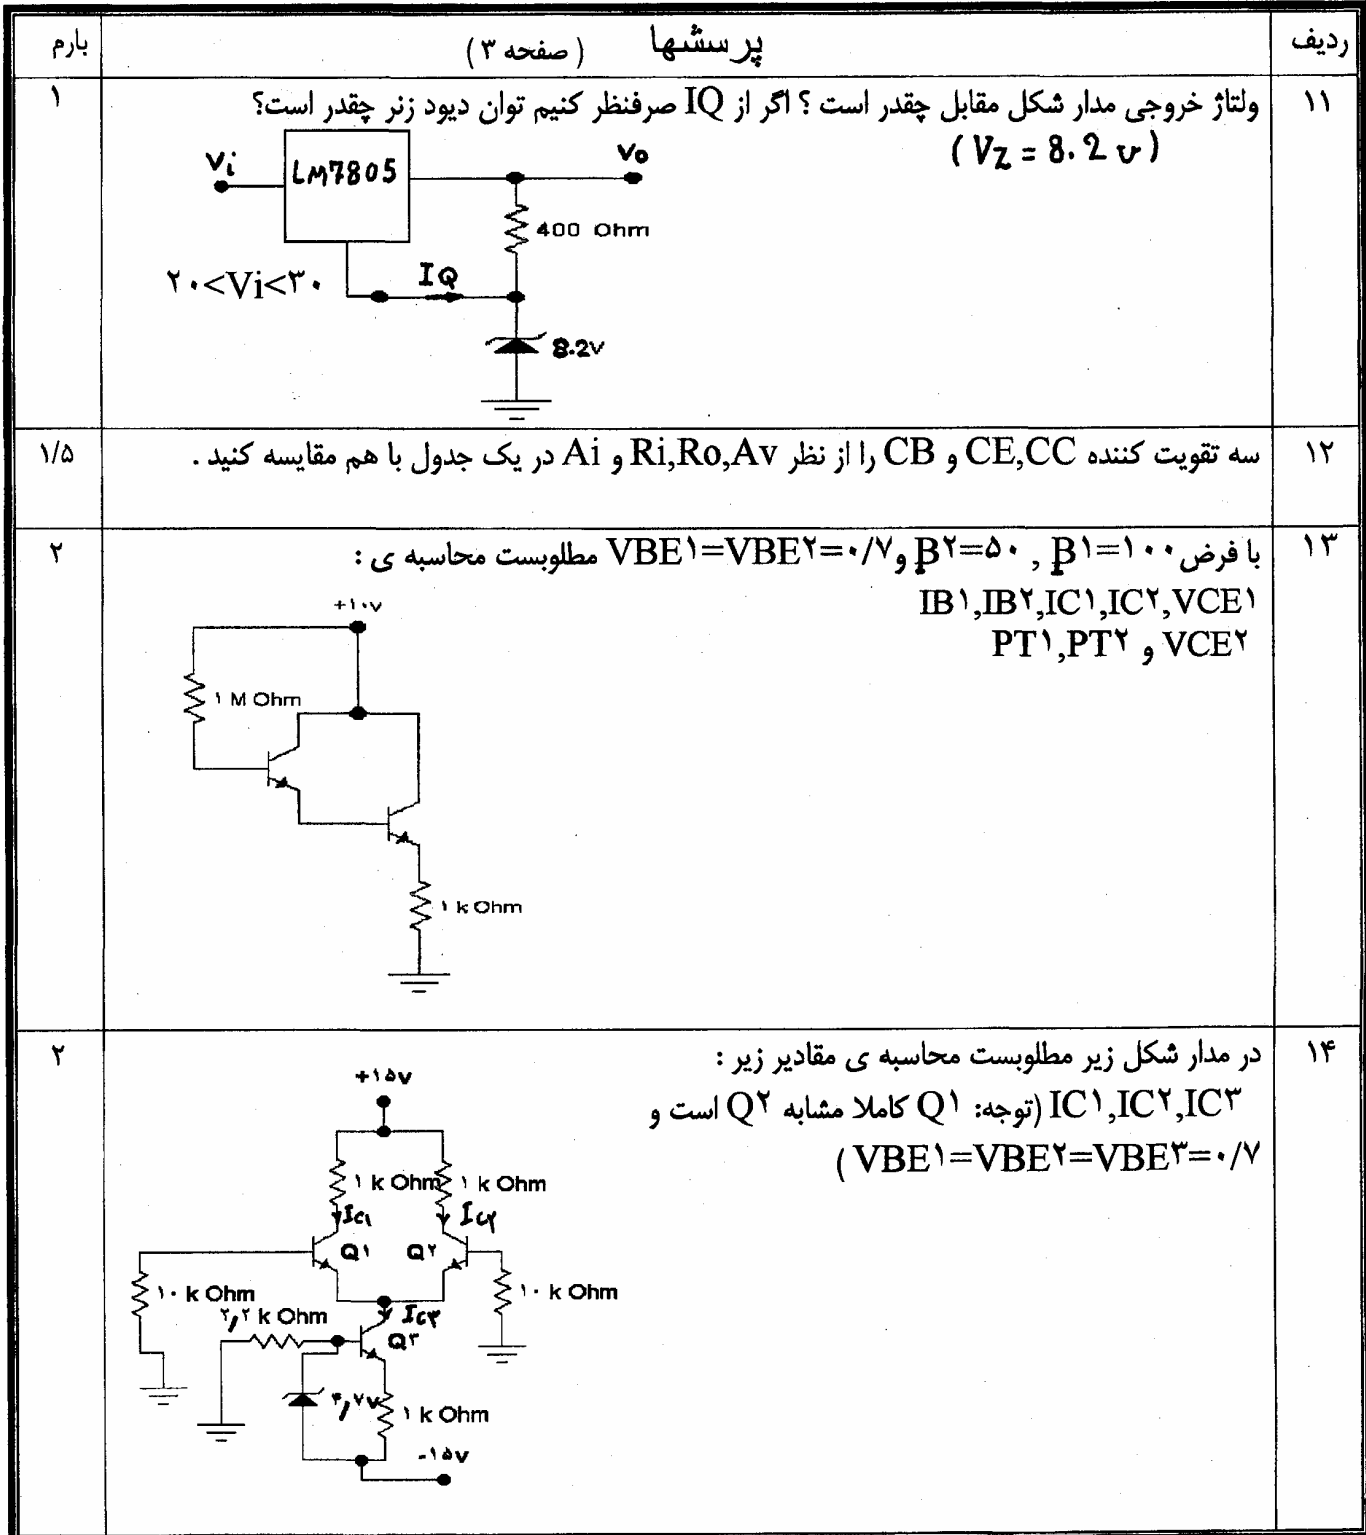 ردیف
پرسشها (صفحه ۳)
بارم
۱۱
ولتاژ خروجی مدار شکل مقابل چقدر است ؟ اگر از IQ صرفنظر کنیم توان دیود زنر چقدر است؟
۱
(VZ = 8.2 v)
Vi
LM7805
Vo
400 Ohm
۲۰<Vi<۳۰
IQ
8.2v
۱۲
سه تقویت کننده CE,CC و CB را از نظر Ri,Ro,Av و Ai در یک جدول با هم مقایسه کنید .
۱/۵
۱۳
با فرض β۱=۱۰۰ , β۲=۵۰ و VBE۱=VBE۲=۰/۷ مطلوبست محاسبه ی :
۲
IB۱,IB۲,IC۱,IC۲,VCE۱
VCE۲ و PT۱,PT۲
+۱۰v
۱ M Ohm
۱ k Ohm
۱۴
در مدار شکل زیر مطلوبست محاسبه ی مقادیر زیر :
۲
IC۱,IC۲,IC۳ (توجه: Q۱ کاملا مشابه Q۲ است و
VBE۱=VBE۲=VBE۳=۰/۷ )
+۱۵v
۱ k Ohm
۱ k Ohm
Ic۱
Ic۲
Q۱
Q۲
۱۰ k Ohm
۱۰ k Ohm
۲,۲ k Ohm
Ic۳
Q۳
۴,۷v
۱ k Ohm
-۱۵v